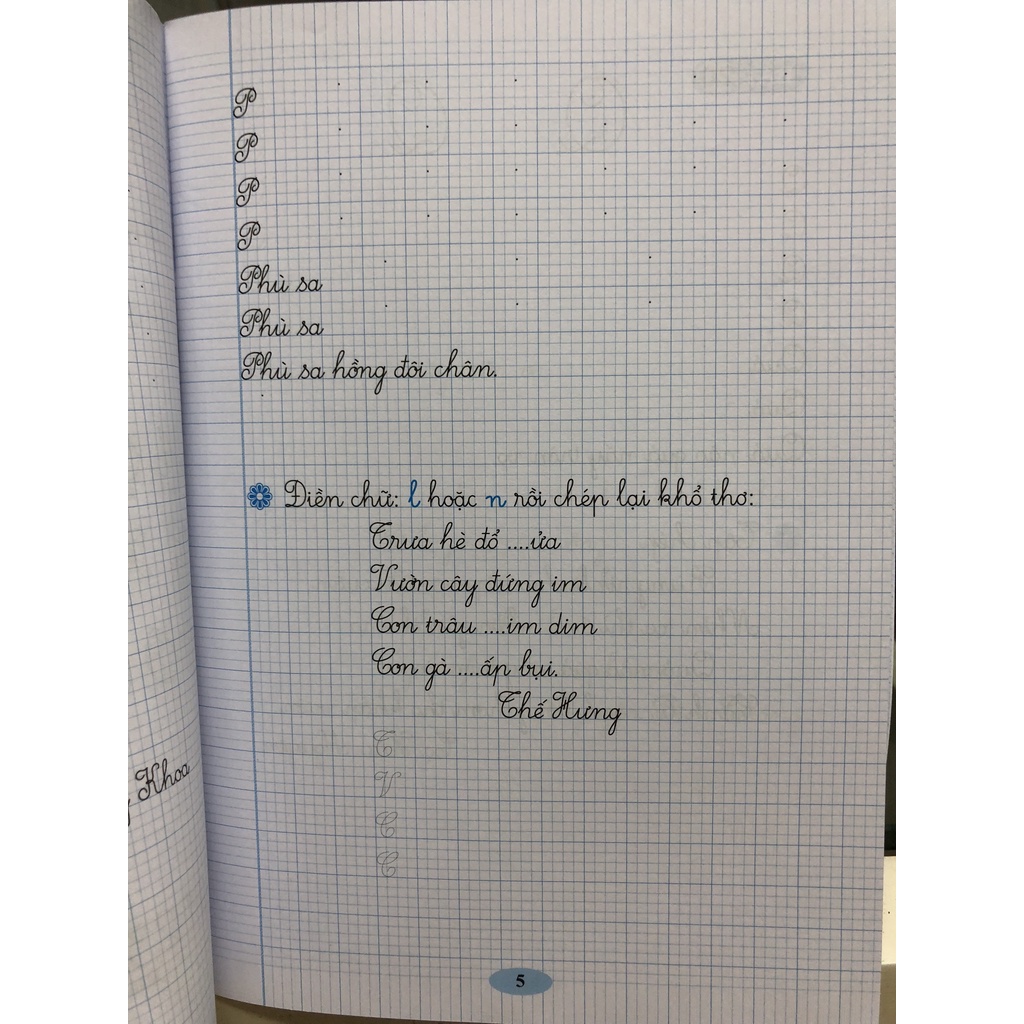 P
P
P
P
Phù sa
Phù sa
Phù sa hồng đôi chân.
Điền chữ: l hoặc n rồi chép lại khổ thơ:
Trưa hè đổ ....ửa
Vườn cây đứng im
Con trâu ....im dim
Con gà ....ấp bụi.
Thế Hưng
T
V
C
C
Khoa
5